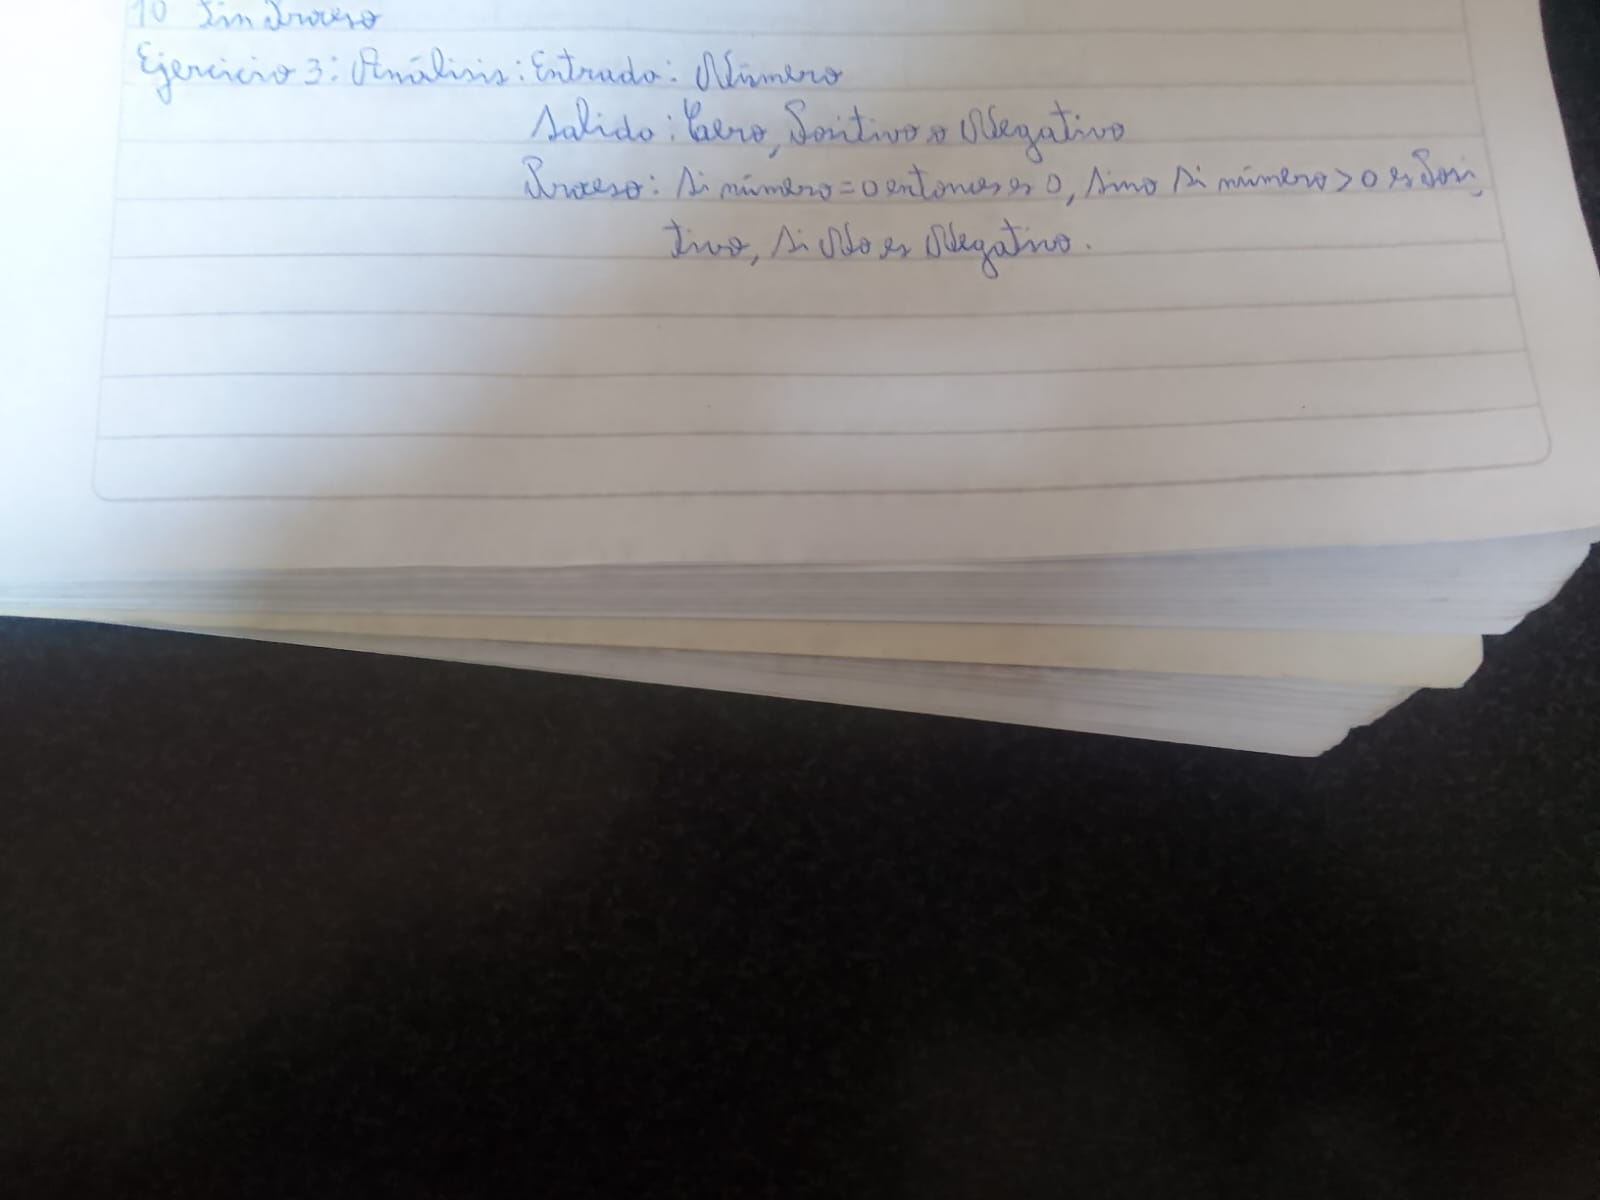 10 Fin Proceso
Ejercicio 3: Análisis: Entrada: Número
Salida: Cero, Positivo o Negativo
Proceso: Si número = 0 entonces es 0, Sino Si número > 0 es Posi-
tivo, Si No es Negativo.